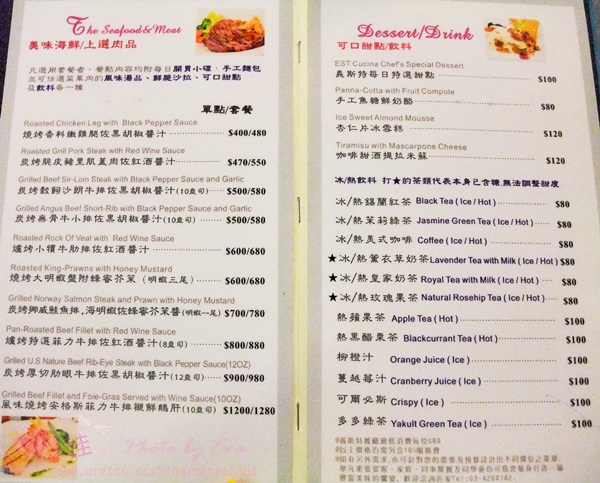 The Seafood & Meat
美味海鮮/上選肉品
凡選用套餐者，餐點內容均附每日開胃小碟，手工麵包
並可任選菜單內的風味湯品、鮮脆沙拉、可口甜點
及飲料各一種
單點/套餐
Roasted Chicken Leg with Black Pepper Sauce
燒烤香料嫩雞腿佐黑胡椒醬汁 $400/480
Roasted Grill Pork Steak with Red Wine Sauce
炭烤脆皮豬里肌蓋肉佐紅酒醬汁 $470/550
Grilled Beef Sir-Loin Steak with Black Pepper Sauce and Garlic
炭烤穀飼沙朗牛排佐黑胡椒醬汁(10盎司) $500/580
Grilled Angus Beef Short-Rib with Black Pepper Sauce and Garlic
炭烤無骨牛小排佐黑胡椒醬汁(10盎司) $500/580
Roasted Rock Of Veal with Red Wine Sauce
爐烤小犢牛肋排佐紅酒醬汁 $600/680
Roasted King-Prawns with Honey Mustard
燒烤大明蝦盤附蜂蜜芥茉(明蝦三尾) $600/680
Grilled Norway Salmon Steak and Prawn with Honey Mustard
炭烤挪威鮭魚排,海明蝦佐蜂蜜芥茉醬(明蝦一尾) $700/780
Pan-Roasted Beef Fillet with Red Wine Sauce
爐烤特選菲力牛排佐紅酒醬汁(8盎司) $800/880
Grilled U.S Nature Beef Rib-Eye Steak with Black Pepper Sauce(12OZ)
炭烤厚切肋眼牛排佐黑胡椒醬汁(12盎司) $900/980
Grilled Beef Fillet and Foie-Gras Served with Wine Sauce(10OZ)
風味燒烤安格斯菲力牛排襯鮮鵝肝(10盎司) $1200/1280
Photo by Eva
Dessert/Drink
可口甜點/飲料
EST Cucina Chef's Special Dessert
義斯特每日特選甜點 $100
Panna-Cotta with Fruit Compote
手工焦糖鮮奶酪 $80
Ice Sweet Almond Mousse
杏仁片冰雪糕 $120
Tiramisu with Mascarpone Cheese
咖啡甜酒提拉米蘇 $120
冰/熱飲料 打★的茶類代表本身已含糖,無法調整甜度
冰/熱錫蘭紅茶 Black Tea ( Ice / Hot ) $80
冰/熱茉莉綠茶 Jasmine Green Tea ( Ice / Hot ) $80
冰/熱美式咖啡 Coffee ( Ice / Hot ) $80
★冰/熱薰衣草奶茶 Lavender Tea with Milk ( Ice / Hot ) $80
★冰/熱皇家奶茶 Royal Tea with Milk ( Ice / Hot ) $80
★冰/熱玫瑰果茶 Natural Rosehip Tea ( Ice / Hot ) $80
熱蘋果茶 Apple Tea ( Hot ) $100
熱黑醋栗茶 Blackcurrant Tea ( Hot ) $100
柳橙汁 Orange Juice ( Ice ) $100
蔓越莓汁 Cranberry Juice ( Ice ) $100
可爾必斯 Crispy ( Ice ) $100
多多綠茶 Yakult Green Tea ( Ice ) $100
◎義斯特餐廳最低消費每位$80
◎以上價格均需另含10%服務費